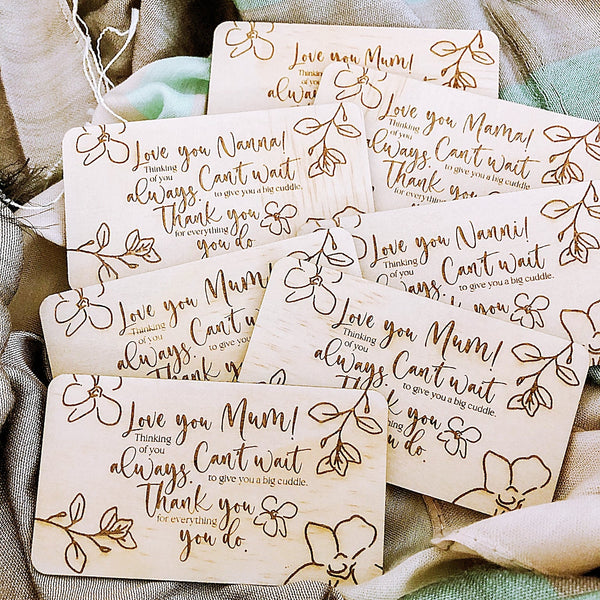 Love you Mum!
Thinking
of you
always.
Love you Mama!
Thinking
of you
always. Can't wait
to give you a big cuddle.
Thank you
for everything
Love you Nanna!
Thinking
of you
always. Can't wait
to give you a big cuddle.
Thank you
for everything
you do.
Love you Nanni!
Thinking
of you
Can't wait
to give you a big cuddle.
you
Love you Mum!
Thinking
of you
always. Can't w
to give you
Thank you
Love you Mum!
Thinking
of you
always. Can't wait
to give you a big cuddle.
you
you do.
Love you Mum!
Thinking
of you
always. Can't wait
to give you a big cuddle.
Thank you
for everything
you do.